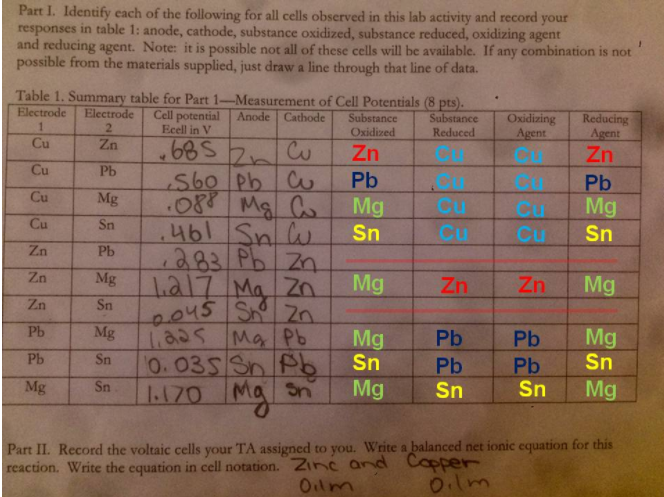 Part I. Identify each of the following for all cells observed in this lab activity and record your
responses in table 1: anode, cathode, substance oxidized, substance reduced, oxidizing agent
and reducing agent. Note: it is possible not all of these cells will be available. If any combination is not
possible from the materials supplied, just draw a line through that line of data.
Table 1. Summary table for Part 1—Measurement of Cell Potentials (8 pts).
Electrode 1 Electrode 2 Cell potential Ecell in V Anode Cathode Substance Oxidized Substance Reduced Oxidizing Agent Reducing Agent
Cu Zn .685 Zn Cu Zn Cu Cu Zn
Cu Pb .560 Pb Cu Pb Cu Cu Pb
Cu Mg .088 Mg Cu Mg Cu Cu Mg
Cu Sn .461 Sn Cu Sn Cu Cu Sn
Zn Pb .283 Pb Zn
Zn Mg 1.217 Mg Zn Mg Zn Zn Mg
Zn Sn 0.045 Sn Zn
Pb Mg 1.225 Mg Pb Mg Pb Pb Mg
Pb Sn 0.035 Sn Pb Sn Pb Pb Sn
Mg Sn 1.170 Mg Sn Mg Sn Sn Mg
Part II. Record the voltaic cells your TA assigned to you. Write a balanced net ionic equation for this
reaction. Write the equation in cell notation. Zinc and Copper
0.1m 0.1m